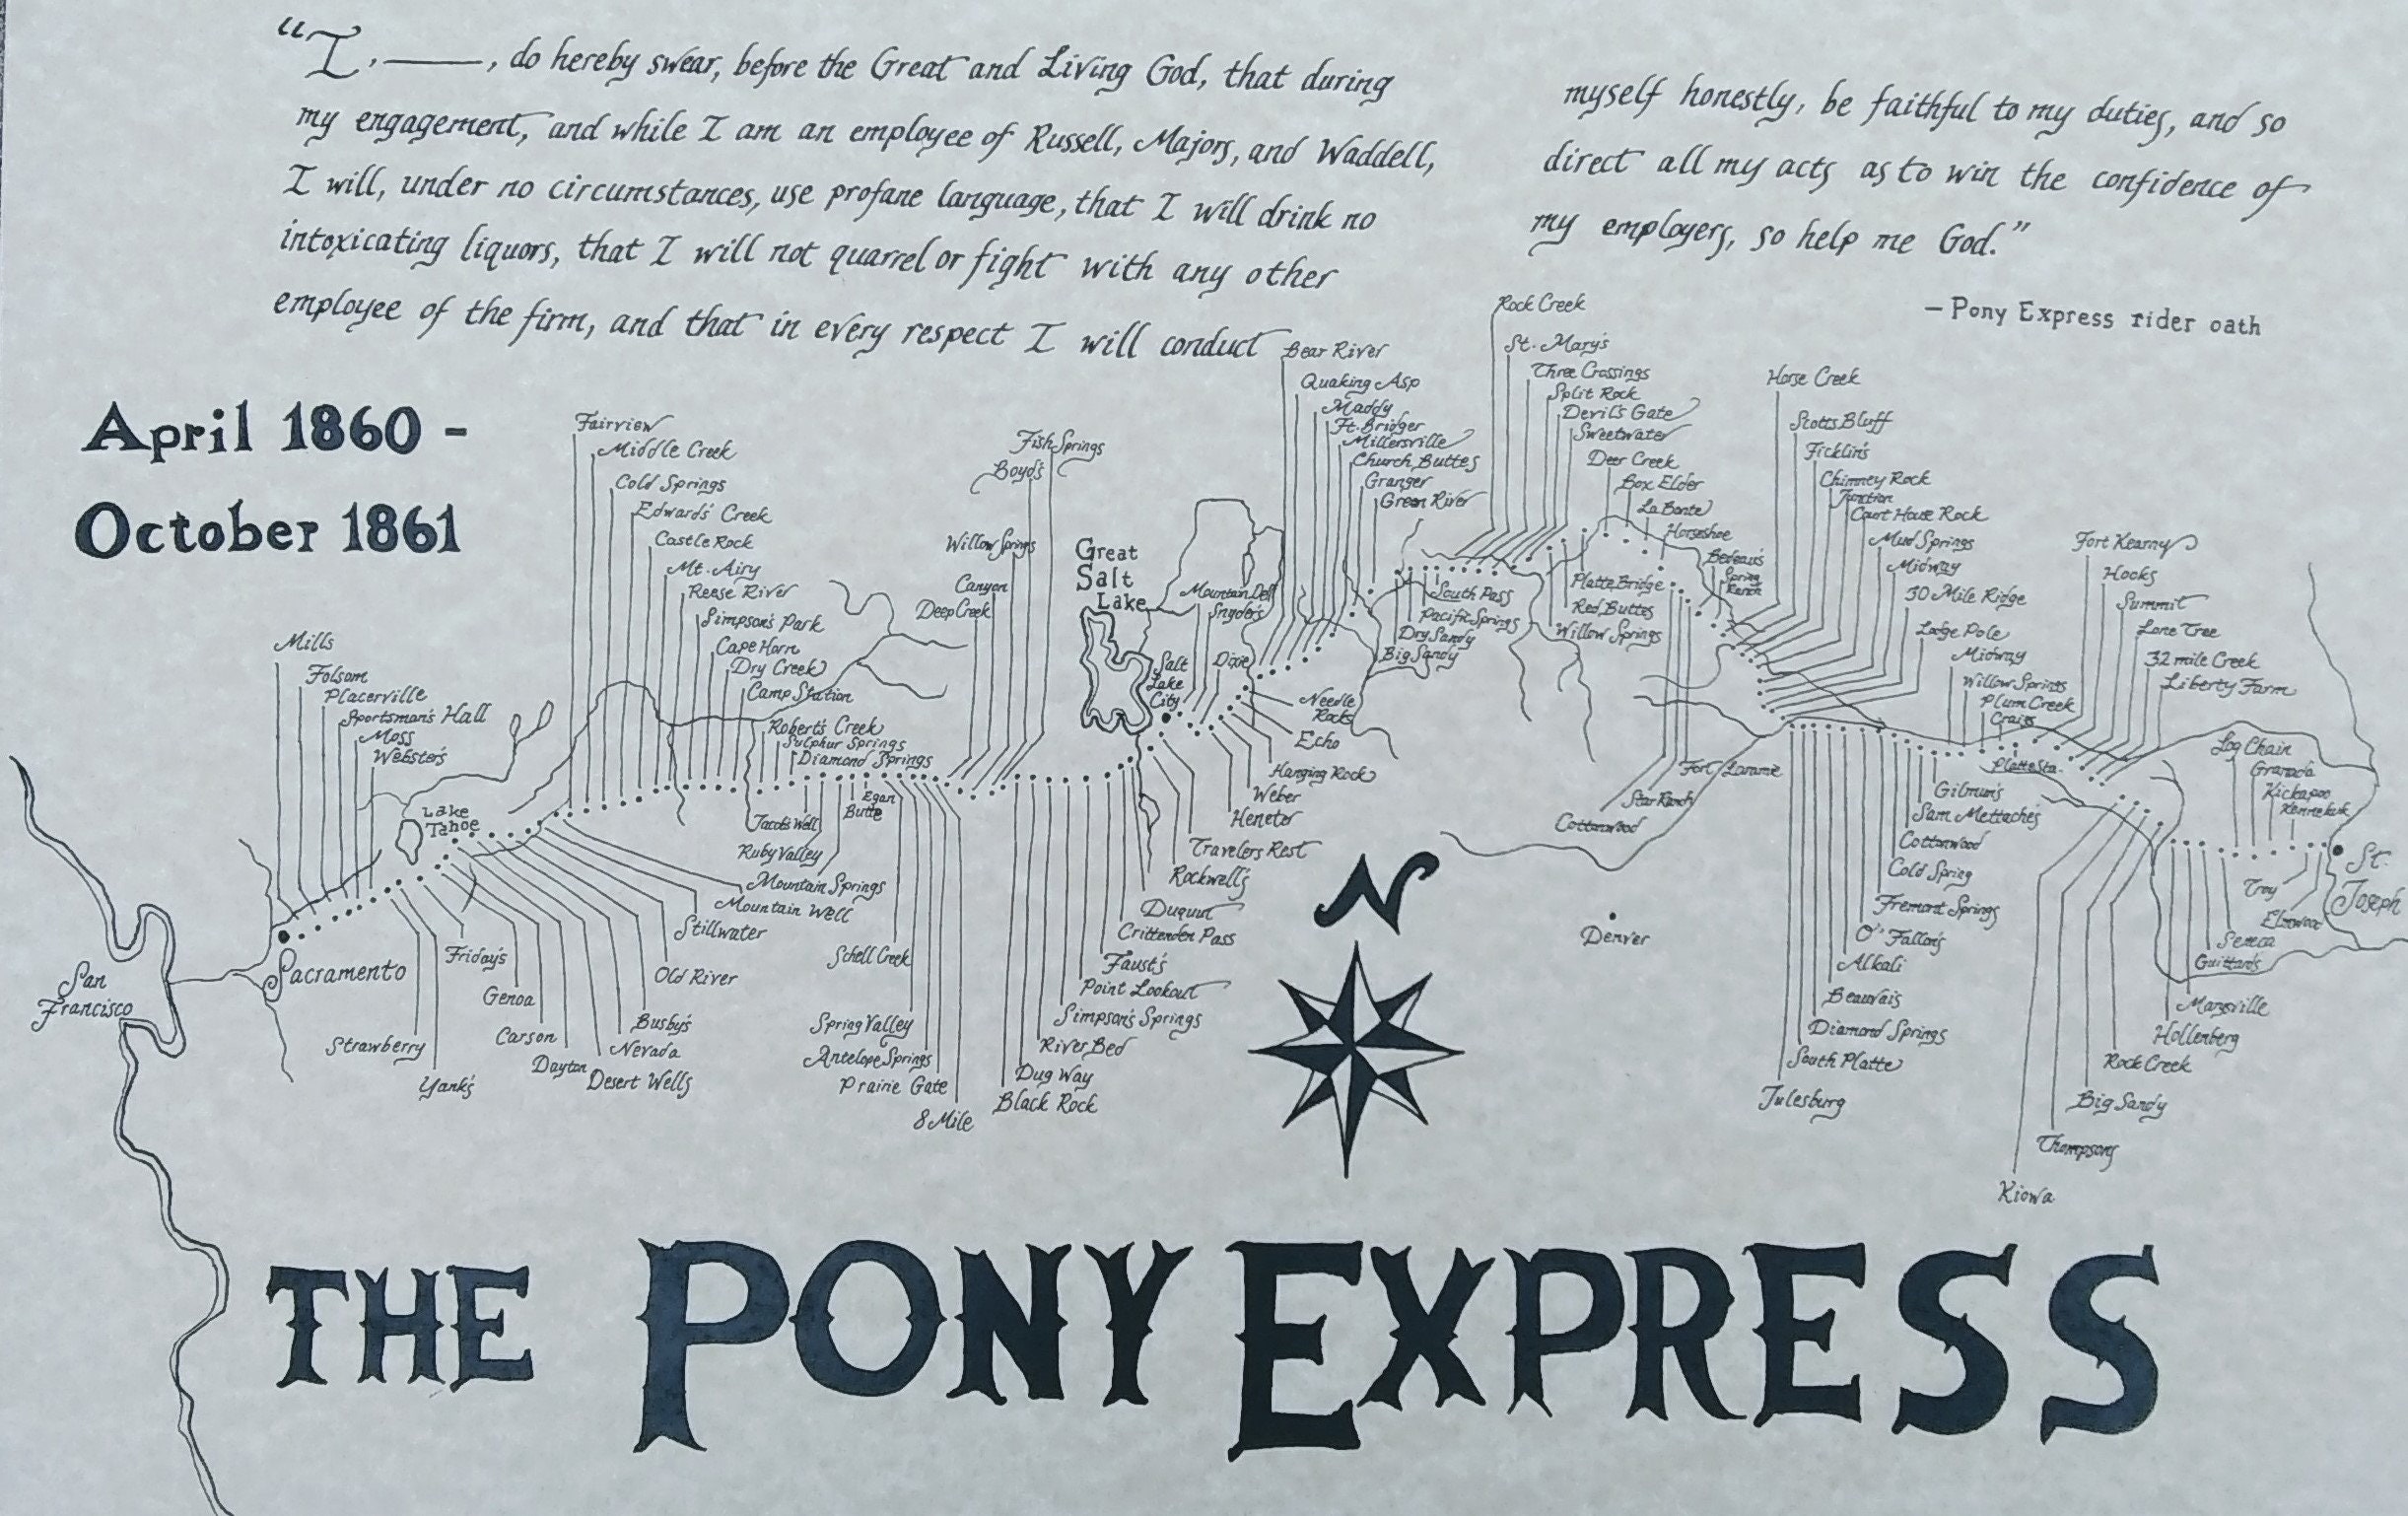 “I, ———, do hereby swear, before the Great and Living God, that during
my engagement, and while I am an employee of Russell, Majors, and Waddell,
I will, under no circumstances, use profane language, that I will drink no
intoxicating liquors, that I will not quarrel or fight with any other
employee of the firm, and that in every respect I will conduct
myself honestly, be faithful to my duties, and so
direct all my acts as to win the confidence of
my employers, so help me God.”
— Pony Express rider oath
April 1860 -
October 1861
San
Francisco
Sacramento
Mills
Folsom
Placerville
Sportsman's Hall
Moss
Webster's
Lake
Tahoe
Strawberry
Yank's
Friday's
Genoa
Carson
Dayton
Desert Wells
Nevada
Busby's
Old River
Stillwater
Mountain Well
Mountain Springs
Fairview
Middle Creek
Cold Springs
Edwards' Creek
Castle Rock
Mt. Airy
Reese River
Simpson's Park
Cape Horn
Dry Creek
Camp Station
Robert's Creek
Sulphur Springs
Diamond Springs
Jacob's Well
Ruby Valley
Butte
Egan
Schell Creek
Spring Valley
Antelope Springs
Prairie Gate
8 Mile
Deep Creek
Canyon
Willow Springs
Boyd's
Fish Springs
Black Rock
Dug Way
River Bed
Simpson's Springs
Point Lookout
Faust's
Crittenden Pass
Rockwell's
Travelers Rest
Great
Salt
Lake
Salt
Lake
City
Mountain Dell
Snyder's
Dixie
Heneter
Weber
Hanging Rock
Echo
Needle
Rocks
Bear River
Quaking Asp
Maddy
Ft. Bridger
Millersville
Church Buttes
Granger
Green River
Big Sandy
Dry Sandy
Pacific Springs
South Pass
Rock Creek
St. Mary's
Three Crossings
Split Rock
Devil's Gate
Sweetwater
Willow Springs
Red Buttes
Platte Bridge
Deer Creek
Box Elder
La Bonte
Horseshoe
Cottonwood
Star Ranch
Fort Laramie
Bedeau's
Spring
Ranch
Horse Creek
Scotts Bluff
Ficklin's
Chimney Rock
Junction
Court House Rock
Mud Springs
Midway
30 Mile Ridge
Lodge Pole
Julesburg
South Platte
Diamond Springs
Beauvais
Alkali
O'Fallon's
Fremont Springs
Cold Spring
Cottonwood
Sam Mettache's
Gilman's
Midway
Willow Springs
Plum Creek
Craig's
Platte Sta.
Fort Kearny
Hooks
Summit
Lone Tree
32 mile Creek
Liberty Farm
Kiowa
Thompsons
Big Sandy
Rock Creek
Hollenberg
Marysville
Guittards
Seneca
Log Chain
Granada
Kickapoo
Kennekuk
Troy
Elmwood
St.
Joseph
Denver
N
THE PONY EXPRESS